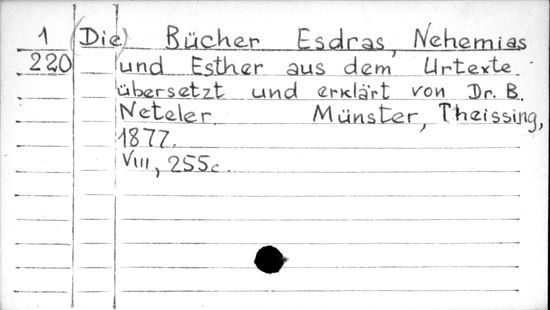 1 (Die) Bücher Esdras, Nehemias
220 und Esther aus dem Urtexte
übersetzt und erklärt von Dr. B.
Neteler. Münster, Theissing,
1877.
VIII, 255c.